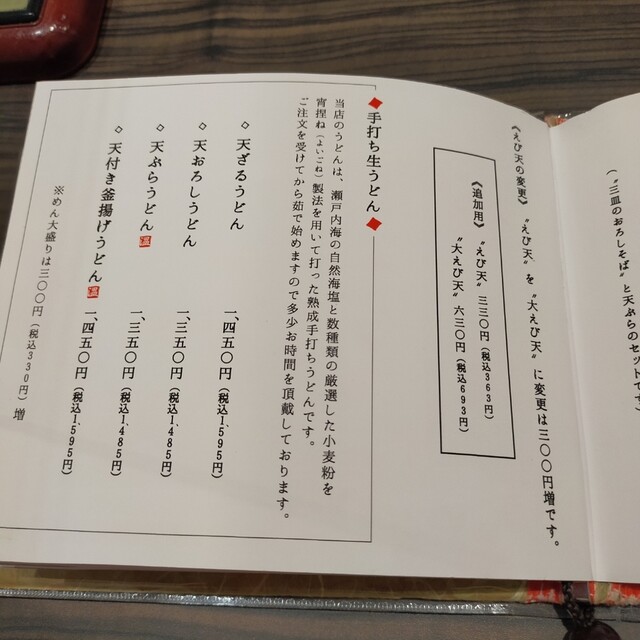 (〝三皿のおろしそば〟と天ぷらのセットです)
《えび天の変更》〝えび天〟を〝大えび天〟に変更は三〇〇円増です。
《追加用》
〝えび天〟三三〇円(税込363円)
〝大えび天〟六三〇円(税込693円)
◆手打ち生うどん◆
当店のうどんは、瀬戸内海の自然海塩と数種類の厳選した小麦粉を
宵捏ね(よいごね)製法を用いて打った熟成手打ちうどんです。
ご注文を受けてから茹で始めますので多少お時間を頂戴しております。
◇天ざるうどん 一、四五〇円(税込1,595円)
◇天おろしうどん 一、三五〇円(税込1,485円)
◇天ぷらうどん 温 一、三五〇円(税込1,485円)
◇天付き釜揚げうどん 温 一、四五〇円(税込1,595円)
※めん大盛りは三〇〇円(税込330円)増